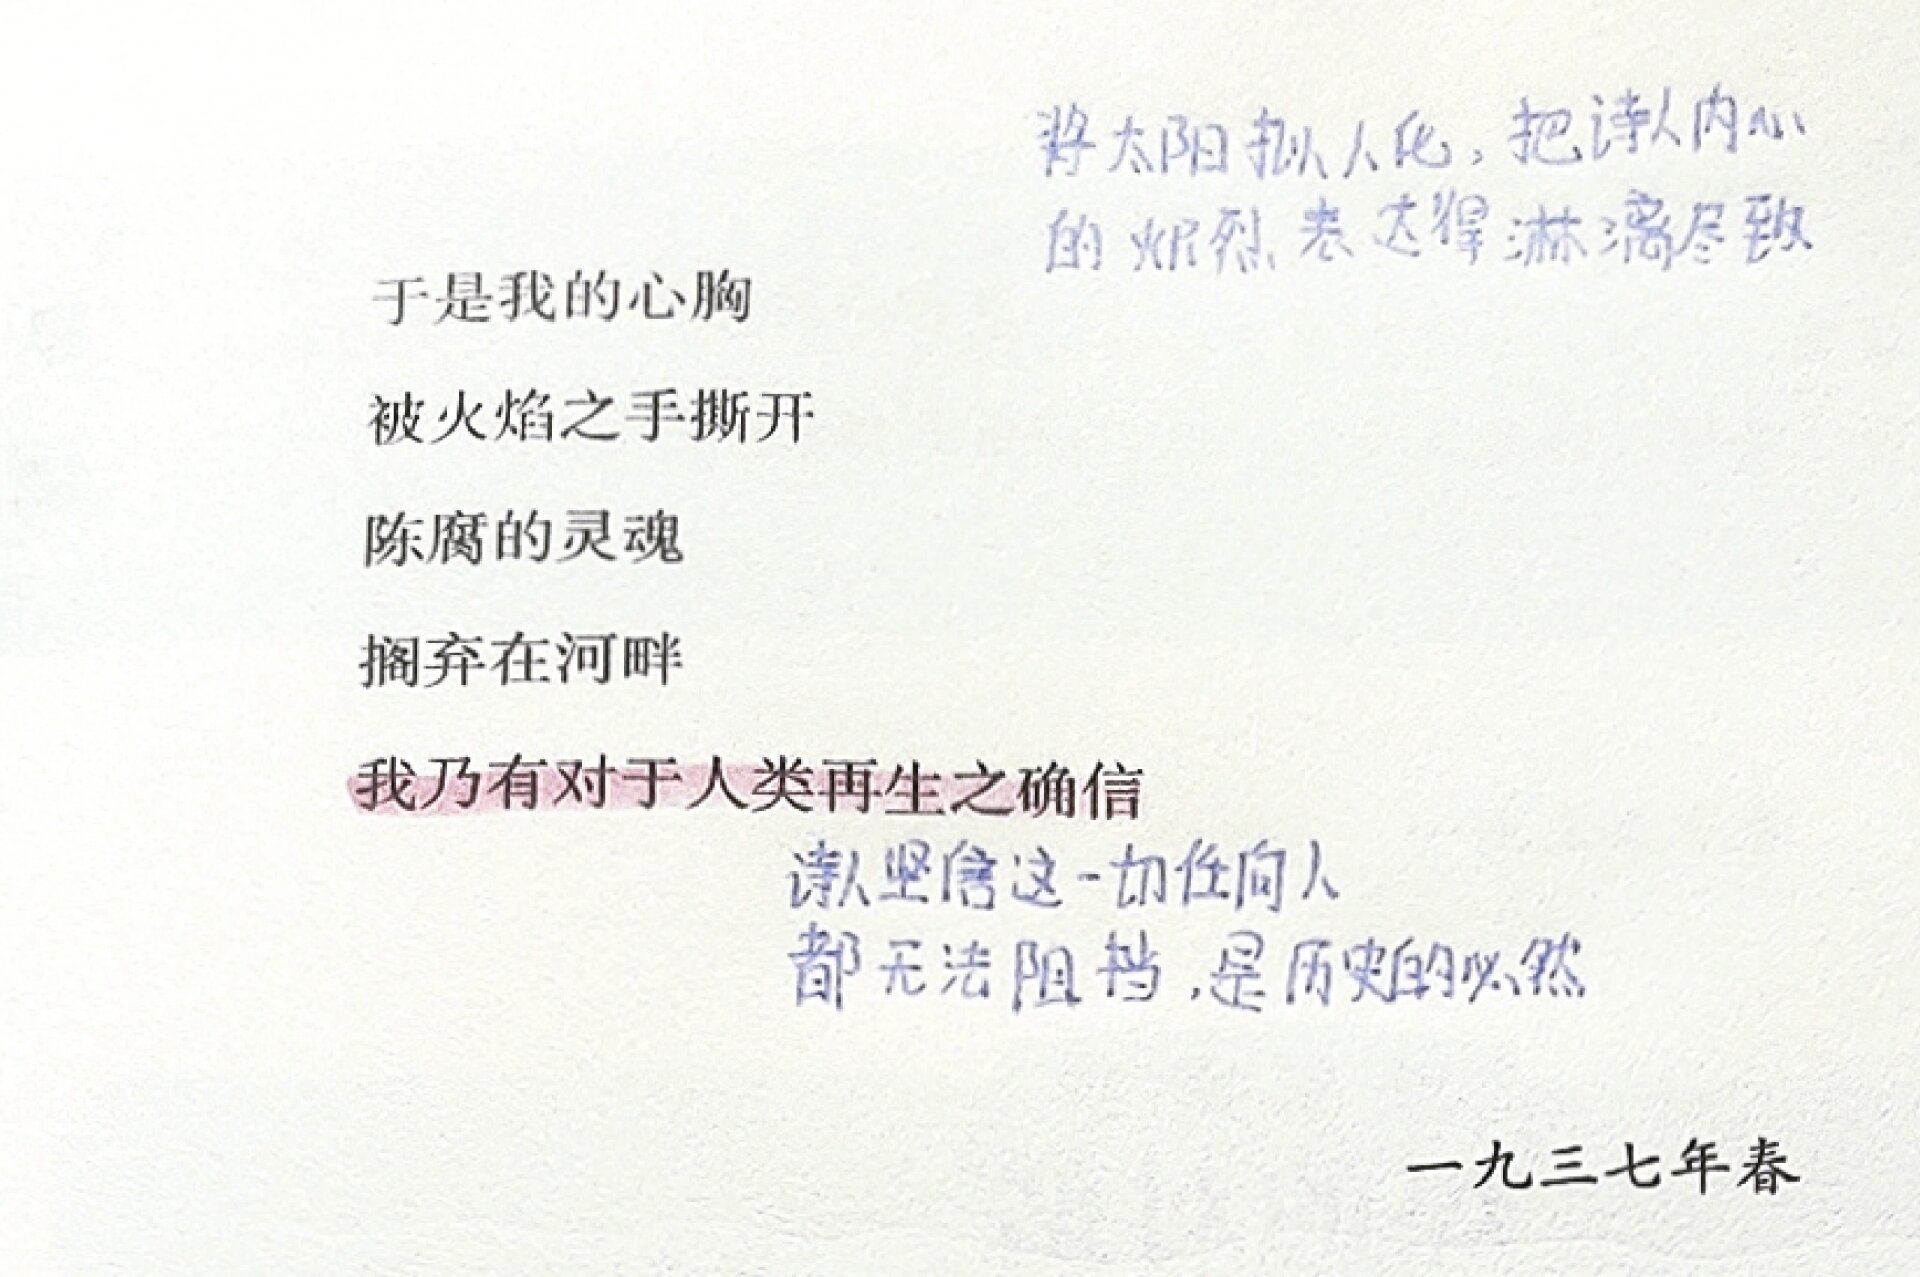 将太阳拟人化，把诗人内心
的炽烈表达得淋漓尽致
于是我的心胸
被火焰之手撕开
陈腐的灵魂
搁弃在河畔
我乃有对于人类再生之确信
诗人坚信这一切任何人
都无法阻挡，是历史的必然
一九三七年春